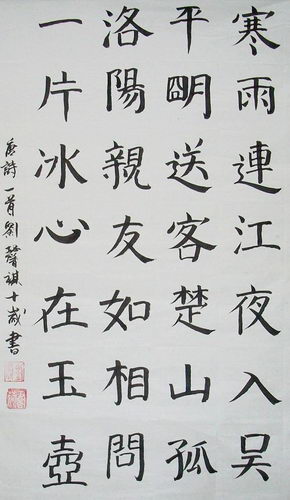 寒雨連江夜入吴
平明送客楚山孤
洛陽親友如相問
一片冰心在玉壺
唐詩一首劉祺十歲書